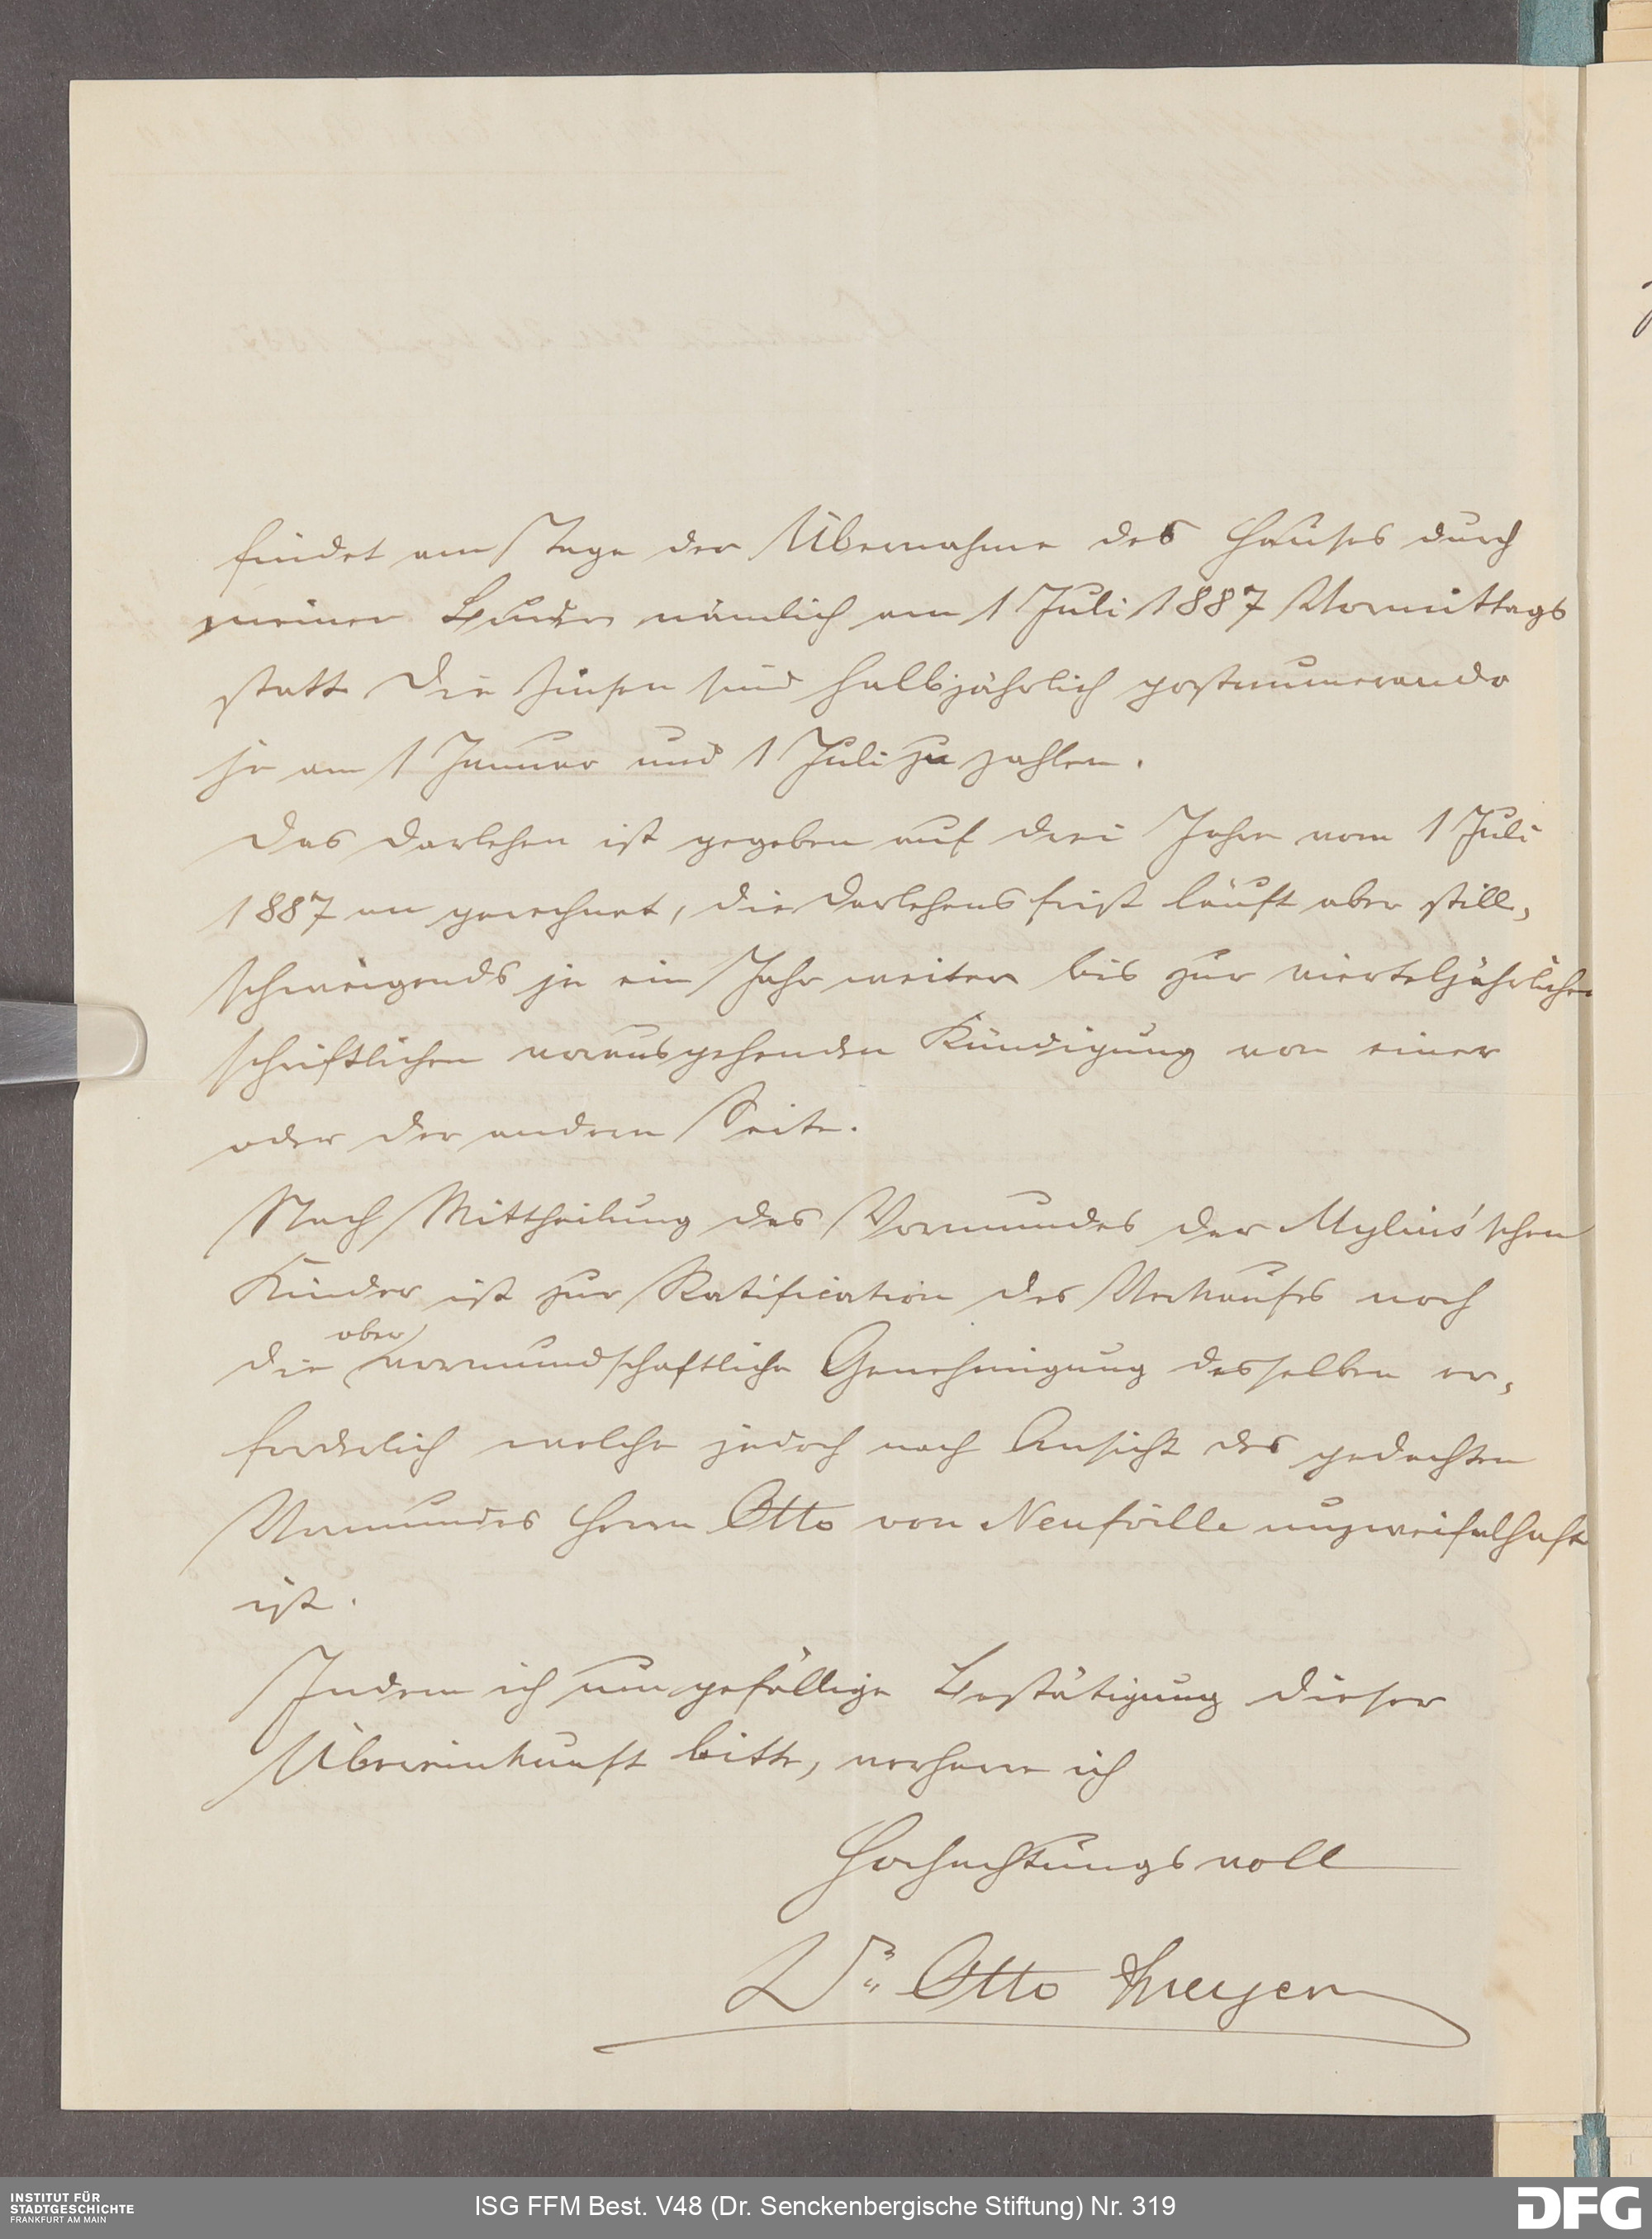 findet am Tage der Übernahme des Hauses durch
meinen Bruder nämlich am 1 Juli 1887 Vormittags
statt Die Zinsen sind halbjährlich postnumerando
je am 1 Januar und 1 Juli zu zahlen.
Das Darlehen ist gegeben auf drei Jahre vom 1 Juli
1887 an gerechnet, die Darlehensfrist läuft aber still,
schweigends je ein Jahr weiter bis zur vierteljährlichen
schriftlichen vorausgehenden Kündigung von einer
oder der andren Seite.
Nach Mittheilung des Vormundes der Mylius'schen
Kinder ist zur Ratification des Verkaufes noch
die obervormundschaftliche Genehmigung desselben er,
forderlich welche jedoch nach Ansicht des gedachten
Vormundes Herrn Otto von Neufville unzweifelhaft
ist.
Indem ich um gefällige Bestätigung dieser
Übereinkunft bitte, verharre ich
Hochachtungsvoll
Dr. Otto
INSTITUT FÜR
STADTGESCHICHTE
FRANKFURT AM MAIN
ISG FFM Best. V48 (Dr. Senckenbergische Stiftung) Nr. 319
DFG